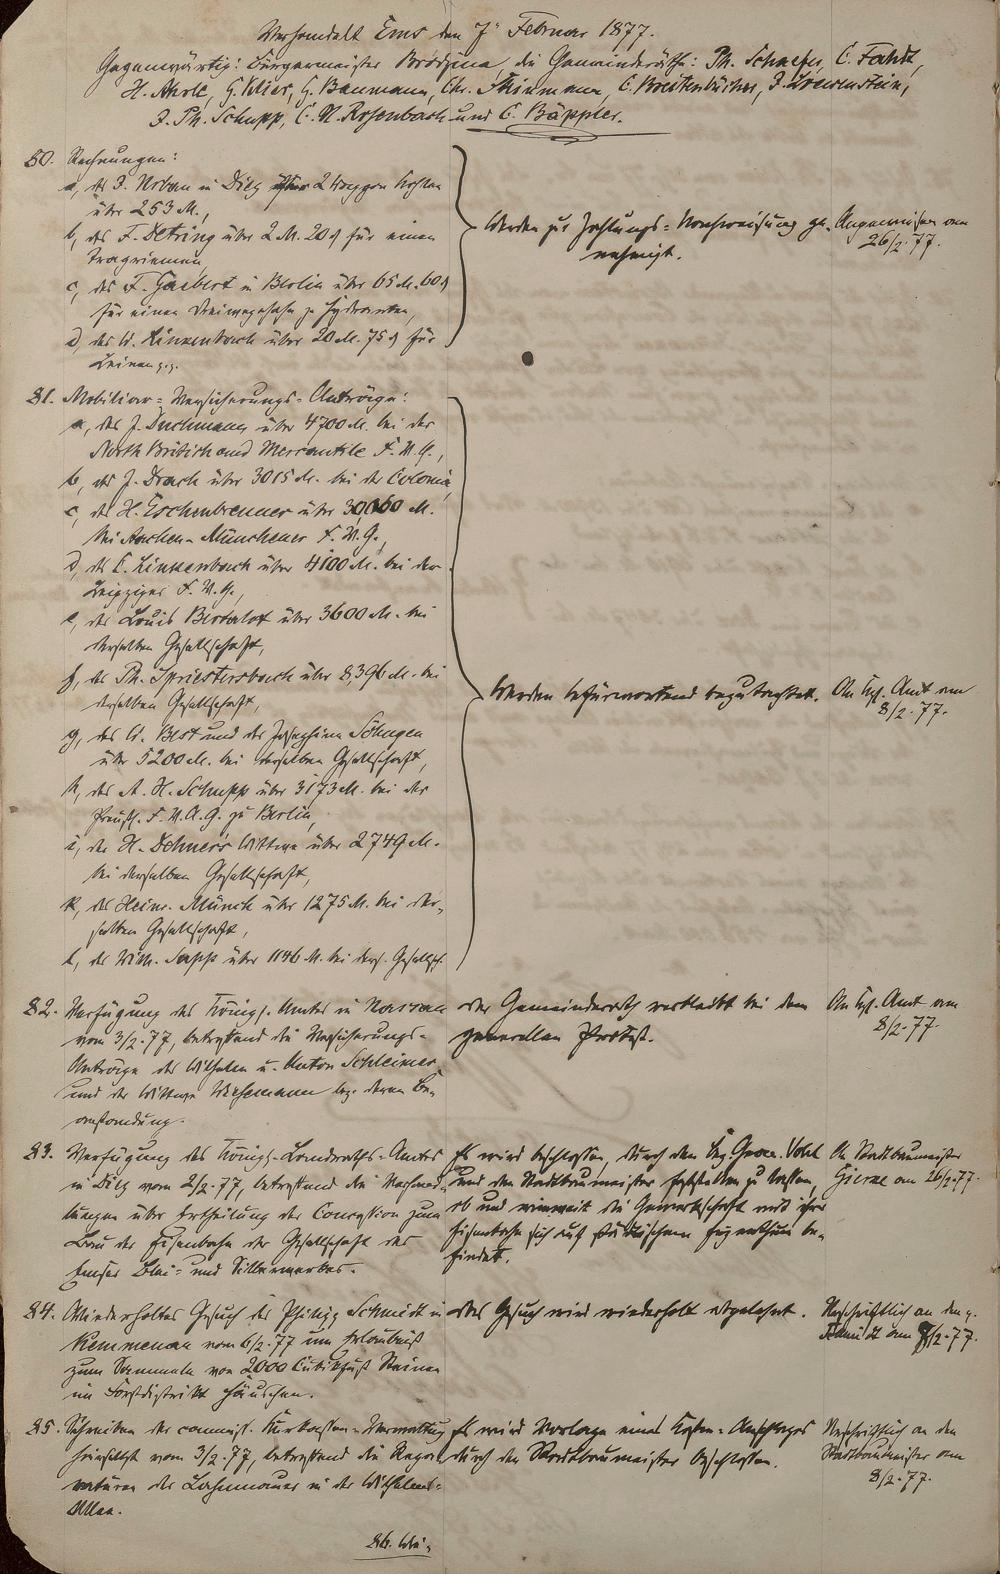 Verhandelt Ems den 7. Februar 1877.
Gegenwärtig: Bürgermeister Brodzina, die Gemeinderäthe: Ph. Schaefer, C. Fahdt,
H. Ahrle, G. Baumann, Chr. Thimmann, C. Breitenbücher, J. Loewenstein,
J. Ph. Schupp, C. N. Rosenbach und C. Bäppler.
80. Rechnungen:
a, des J. Urban in Diez über 2 Waggon Kohlen
über 253 M.,
b, des F. Detring über 2 M. 20 ₰ für einen
Tragriemen,
c, des F. Gaebert in Berlin über 65 M. 60 ₰
für einen Dreiwegehahn z. Hydranten,
d, des W. Linkenbach über 20 M. 75 ₰ für
Leinen p.p.
Werden zur Zahlungs-Anweisung ge-
nehmigt.
Angewiesen am
26/2. 77.
81. Mobiliar-Versicherungs-Anträge:
a, des J. Duchmann über 4700 M. bei der
North British and Mercantile F. V. G.,
b, des J. Drach über 3015 M. bei der Colonia,
c, des H. Eschenbrenner über M.
bei Aachen-Münchener F. V. G.,
d, des C. Linkenbach über 4100 M. bei der
Leipziger F. V. G.,
e, des Louis Bertalot über 3600 M. bei
derselben Gesellschaft,
f, des Ph. Spriestersbach über 8,396 M. bei
derselben Gesellschaft,
g, des A. Best und der Josephine Söhngen
über 5200 M. bei derselben Gesellschaft,
h, des A. H. Schupp über 3173 M. bei der
Preuß. F. V. A. G. zu Berlin,
i, der H. Dehner's Wittwe über 2749 M.
bei derselben Gesellschaft,
k, des Heinr. Münch über 1275 M. bei der-
selben Gesellschaft,
l, des Wilh. Sapp über 1146 M. bei ders. Gesellsch.
Werden befürwortend begutachtet.
An Kgl. Amt am
8/2. 77.
82. Verfügung des Königl. Amtes in Nassau
vom 3/2. 77, betreffend die Versicherungs-
Anträge des Wilhelm u. Anton Schleimer
und der Wittwe Wiesemann bez. deren Be-
anstandung.
Der Gemeinderath verbleibt bei dem
generellen Protest.
An Kgl. Amt am
8/2. 77.
83. Verfügung des Königl. Landraths-Amtes
in Diez vom 2/2. 77, betreffend die Verhand-
lungen über Ertheilung der Concession zum
Bau der Eisenbahn der Gesellschaft des
Emser Blei- und Silberwerkes.
Es wird beschlossen, durch den Vogt
und den Stadtbaumeister feststellen zu lassen,
ob und wieweit die Gewerkschaft mit ihrer
Eisenbahn sich auf städtischem Eigenthum be-
findet.
An Stadtbaumeister
am 16/2. 77.
84. Wiederholtes Gesuch des Philipp Schmidt in
Kemmenau vom 6/2. 77 um Erlaubniß
zum Sammeln von 2000 Cubikfuß Steinen
im Forstdistrikt Häuschen.
Das Gesuch wird wiederholt abgelehnt.
Urschriftlich an den p.
Schmidt am 8/2. 77.
85. Schreiben der commiss. Kurkassen-Verwaltung
hierselbst vom 3/2. 77, betreffend die Repa-
raturen der Lahnmauer in der Wilhelms-
Allee.
Es wird Vorlage eines Kosten-Anschlages
durch den Stadtbaumeister beschlossen.
Urschriftlich an den
Stadtbaumeister am
8/2. 77.